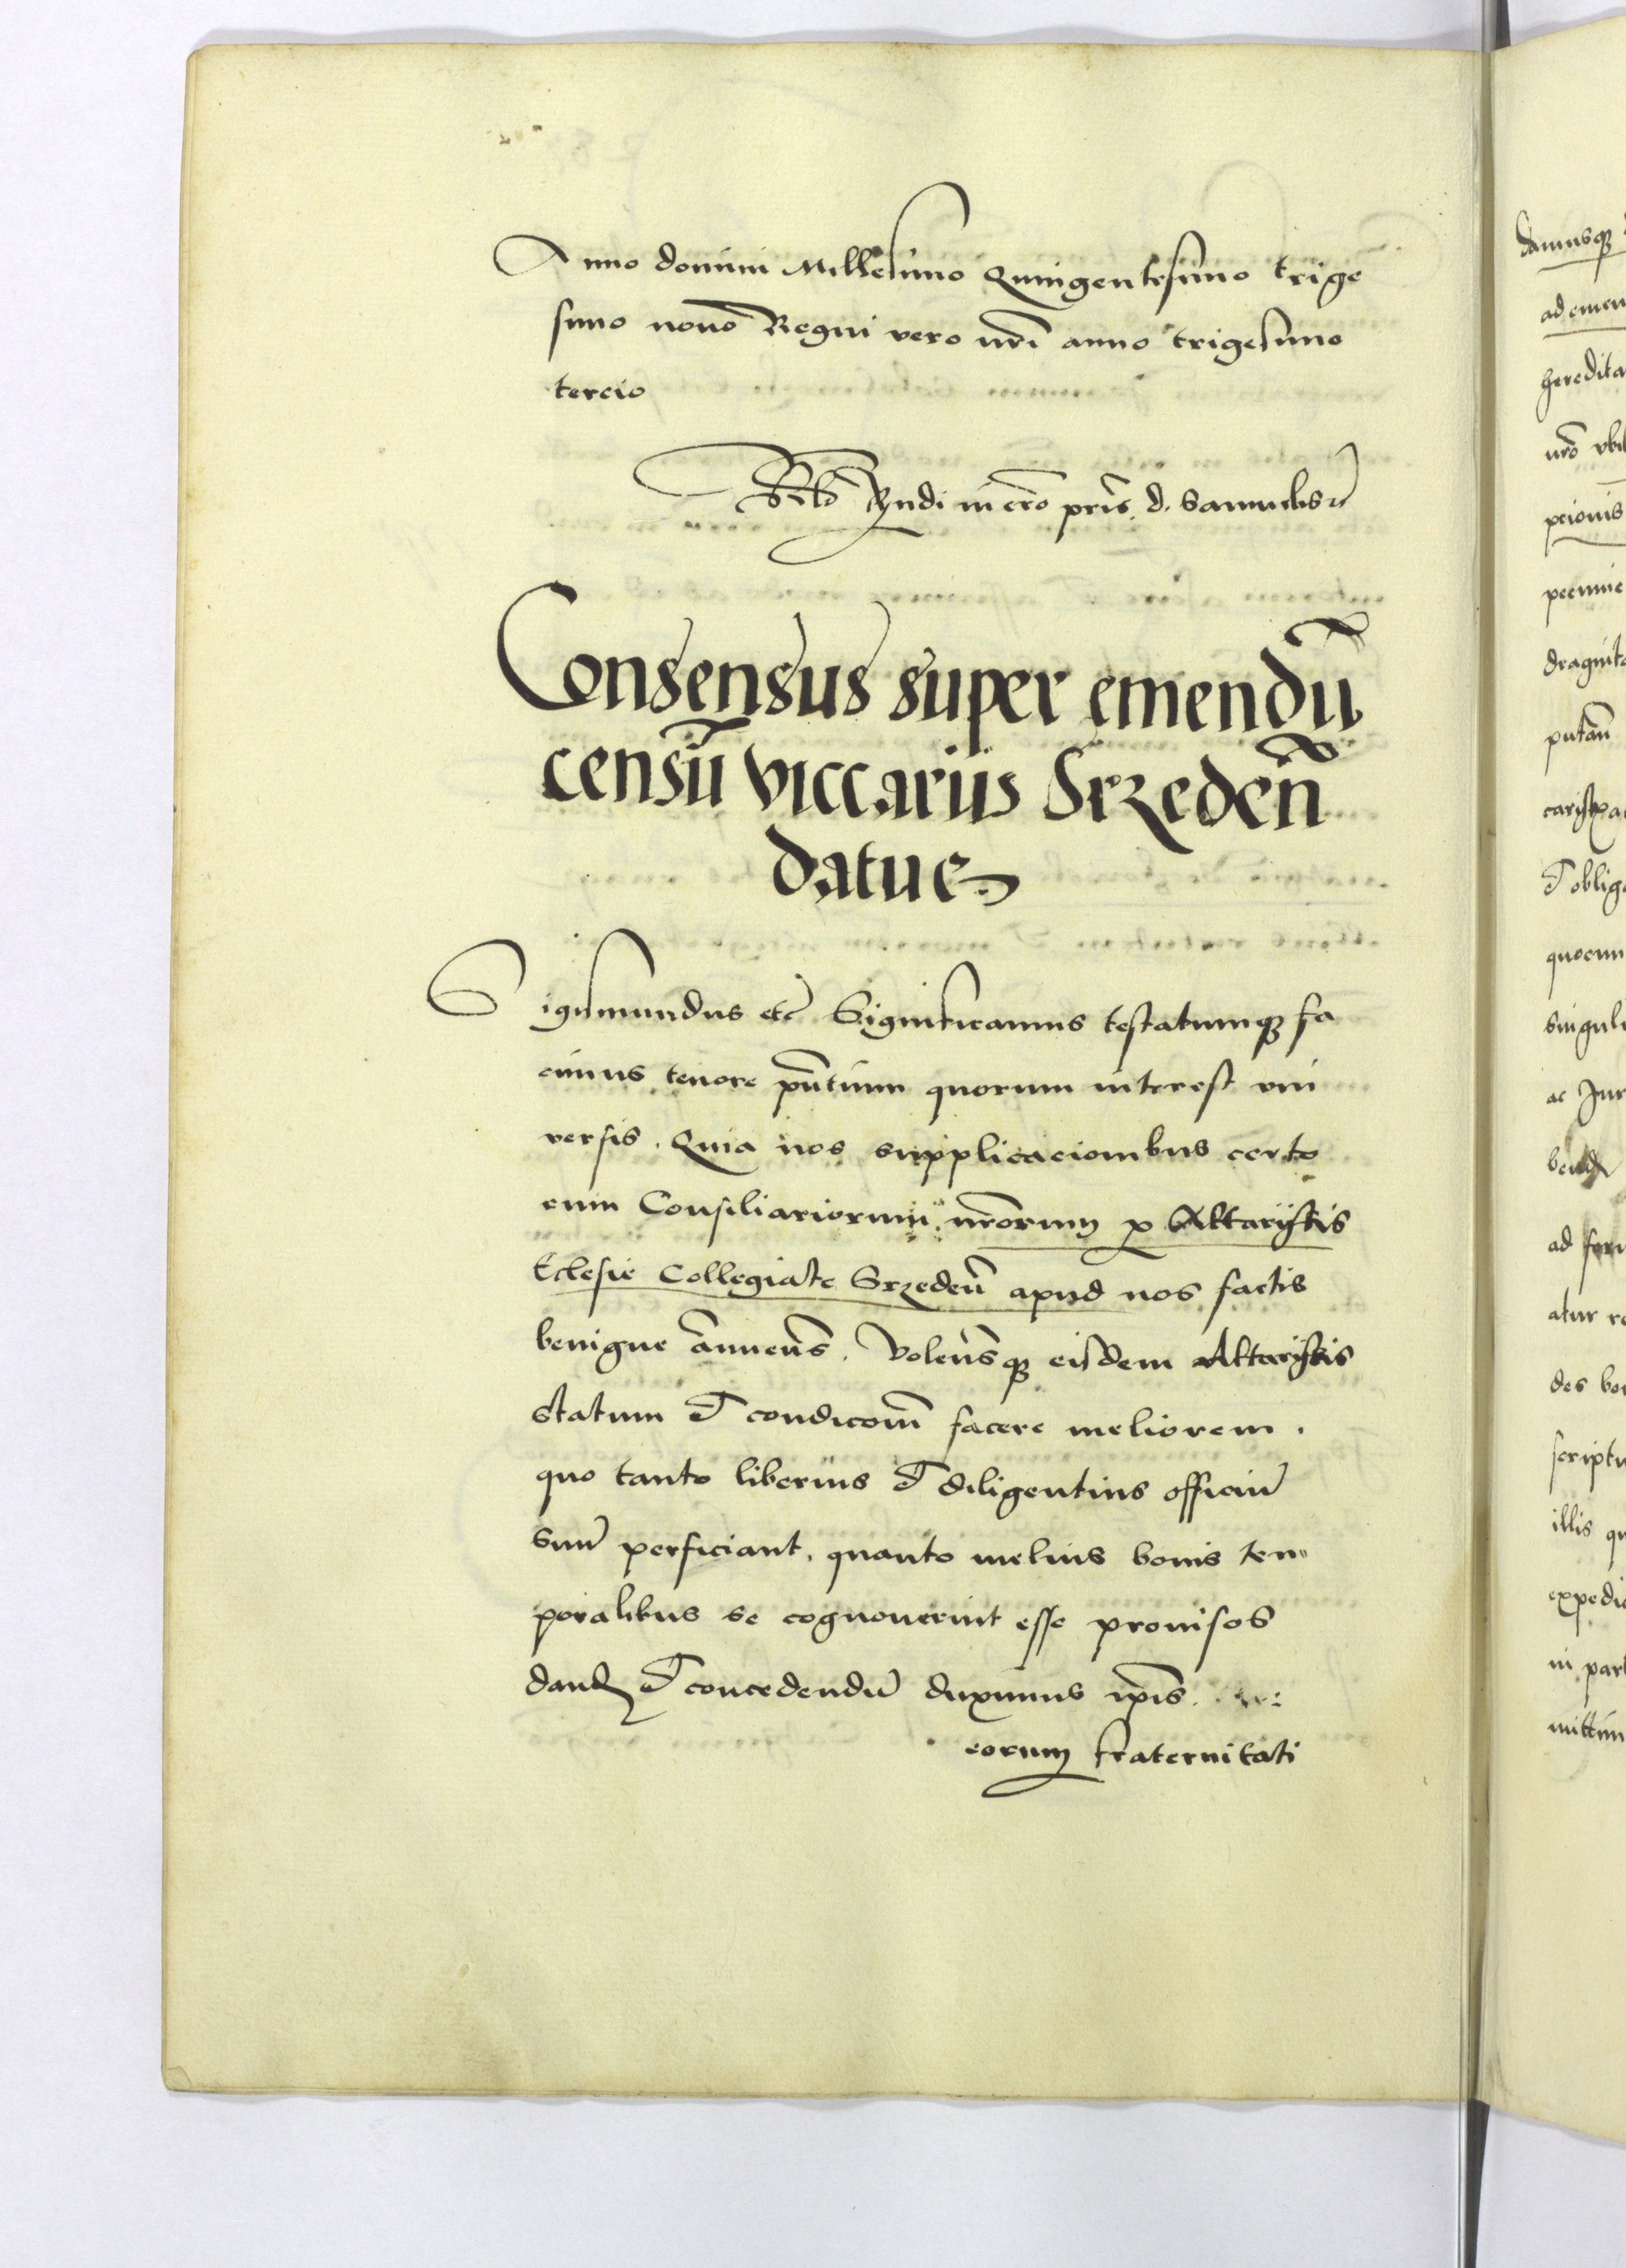 Anno domini Millesimo Quingentesimo trige
simo nono Regni vero nrī anno trigesimo
tercio
Rlō R̄ndi in cro pris d. Samuelis
Consensus super emendū
censū viccariis Srzedeñ
datue
Sigismundus etc Significamus testatumq fa
cimus tenore pñtium quorum interest vni
versis. Quia nos supplicacionibus certo
rum Consiliariorum nrorum p Altaristis
Eclesie Collegiate Srzedeñ apud nos factis
benigne annueñs. Voleñsq eisdem Altaristis
statum et condicoēm facere meliorem.
quo tanto liberius et diligentius officiū
suū perficiant, quanto melius bonis tem
poralibus se cognouerint esse prouisos
dand et concedendū duximus ipīs
eorum fraternitati
Damusq
ad emen
hereditа
nrō vbi
pcionis
pecunie
dragint
putañ
et oblig
quocun
singul
ac Jur
ad
atur re
des bo
scriptu
illis qu
expedi
in par
mittim